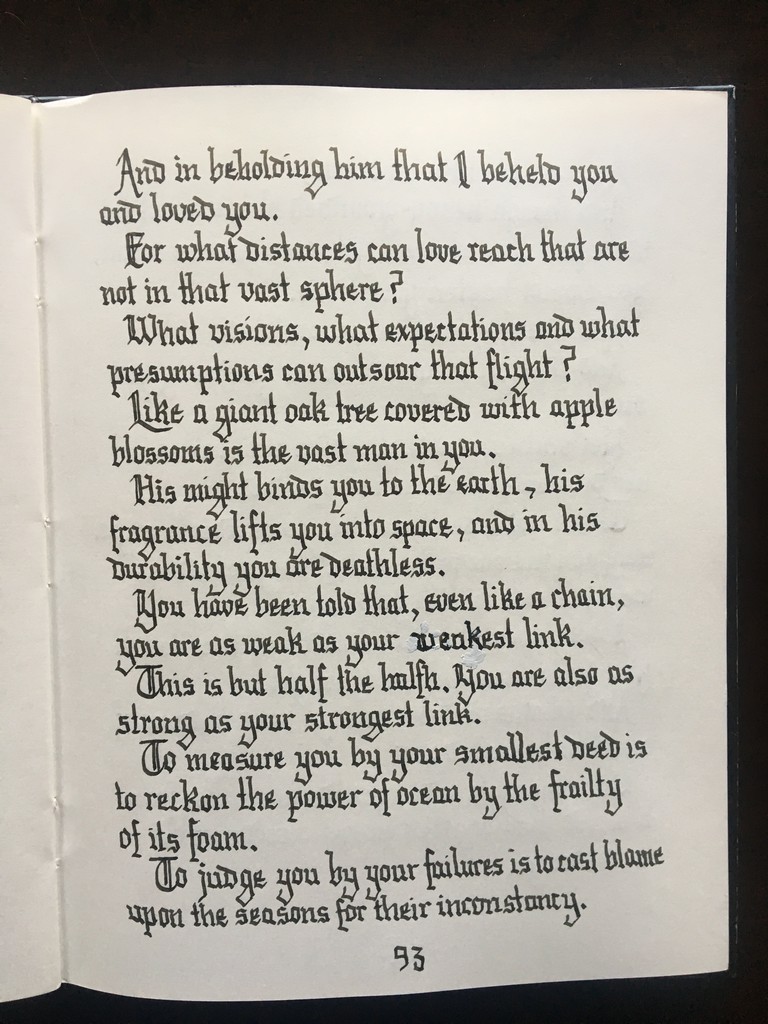 And in beholding him that I beheld you
and loved you.
For what distances can love reach that are
not in that vast sphere?
What visions, what expectations and what
presumptions can outsoar that flight?
Like a giant oak tree covered with apple
blossoms is the vast man in you.
His might binds you to the earth, his
fragrance lifts you into space, and in his
durability you are deathless.
You have been told that, even like a chain,
you are as weak as your weakest link.
This is but half the You are also as
strong as your strongest link.
To measure you by your smallest deed is
to reckon the power of ocean by the frailty
of its foam.
To judge you by your failures is to cast blame
upon the seasons for their inconstancy.
93